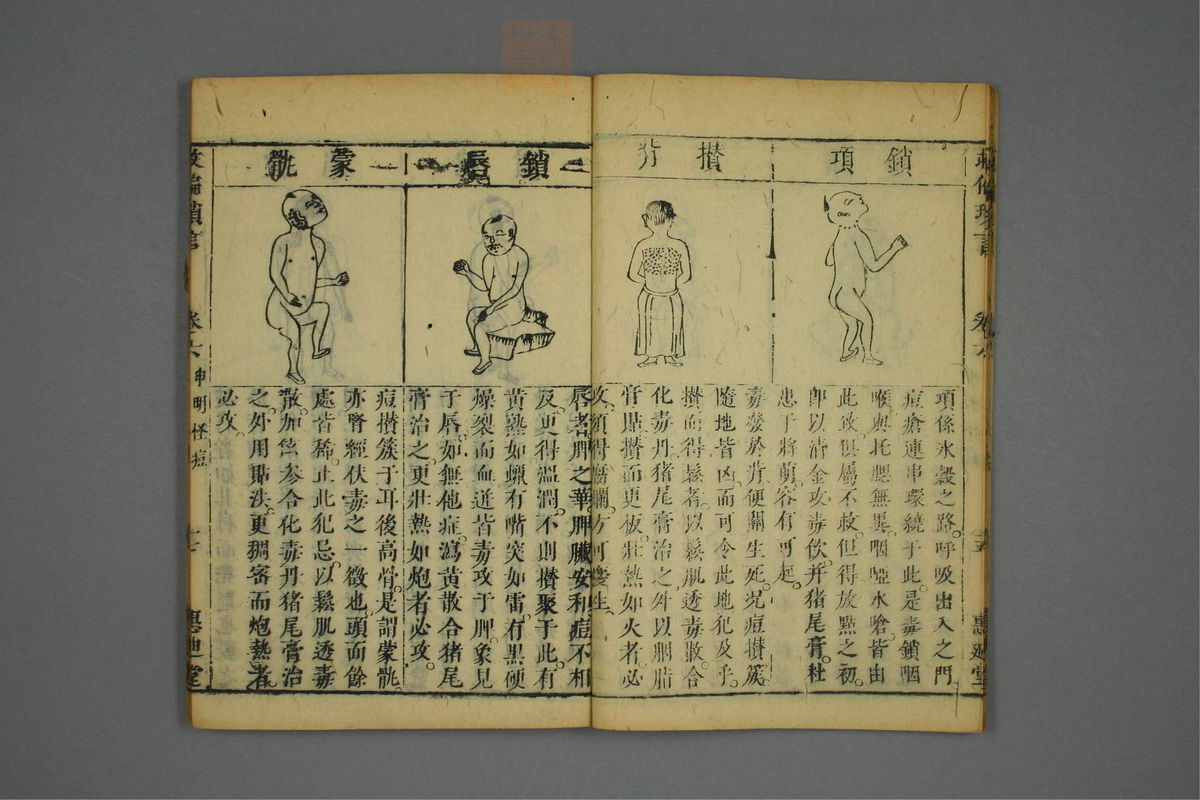 鎖項
項係水穀之路。呼吸出入之門
痘瘡連串環繞于此。是毒鎖咽
喉。與托腮無異。咽啞水嗆。皆由
此致。俱屬不救。但得放點之初。
即以清金攻毒飲。并猪尾膏。杜
患于將萌。容有可起。
攢背
毒發於背。便關生死。况痘攢簇
隨地皆凶。而可令此地犯及乎。
攢而得鬆者。以鬆肌透毒散。合
化毒丹猪尾膏治之。外以胭脂
膏貼。攢而更板。壯熱如火者。必
攻。須得潛爛。方可慶生。
鎖唇
唇者脾之華。脾臟安和。痘不相
反。更得溫潤。不則攢聚于此。有
黃熟如蠟。有嘴突如雷。有黑硬
燥裂而血迸。皆毒攻于脾。象見
于唇。如無他症。瀉黃散合猪尾
膏治之。更壯熱如炮者。必攻。
蒙骩
痘攢簇于耳後高骨。是謂蒙骩。
亦腎經伏毒之一徵也。頭面餘
處皆稀。止此犯忌。以鬆肌透毒
散。加參合化毒丹猪尾膏治
之。外用貼法。更稠密而炮熱者。
必攻。
卷六
申明怪痘
惠迪堂